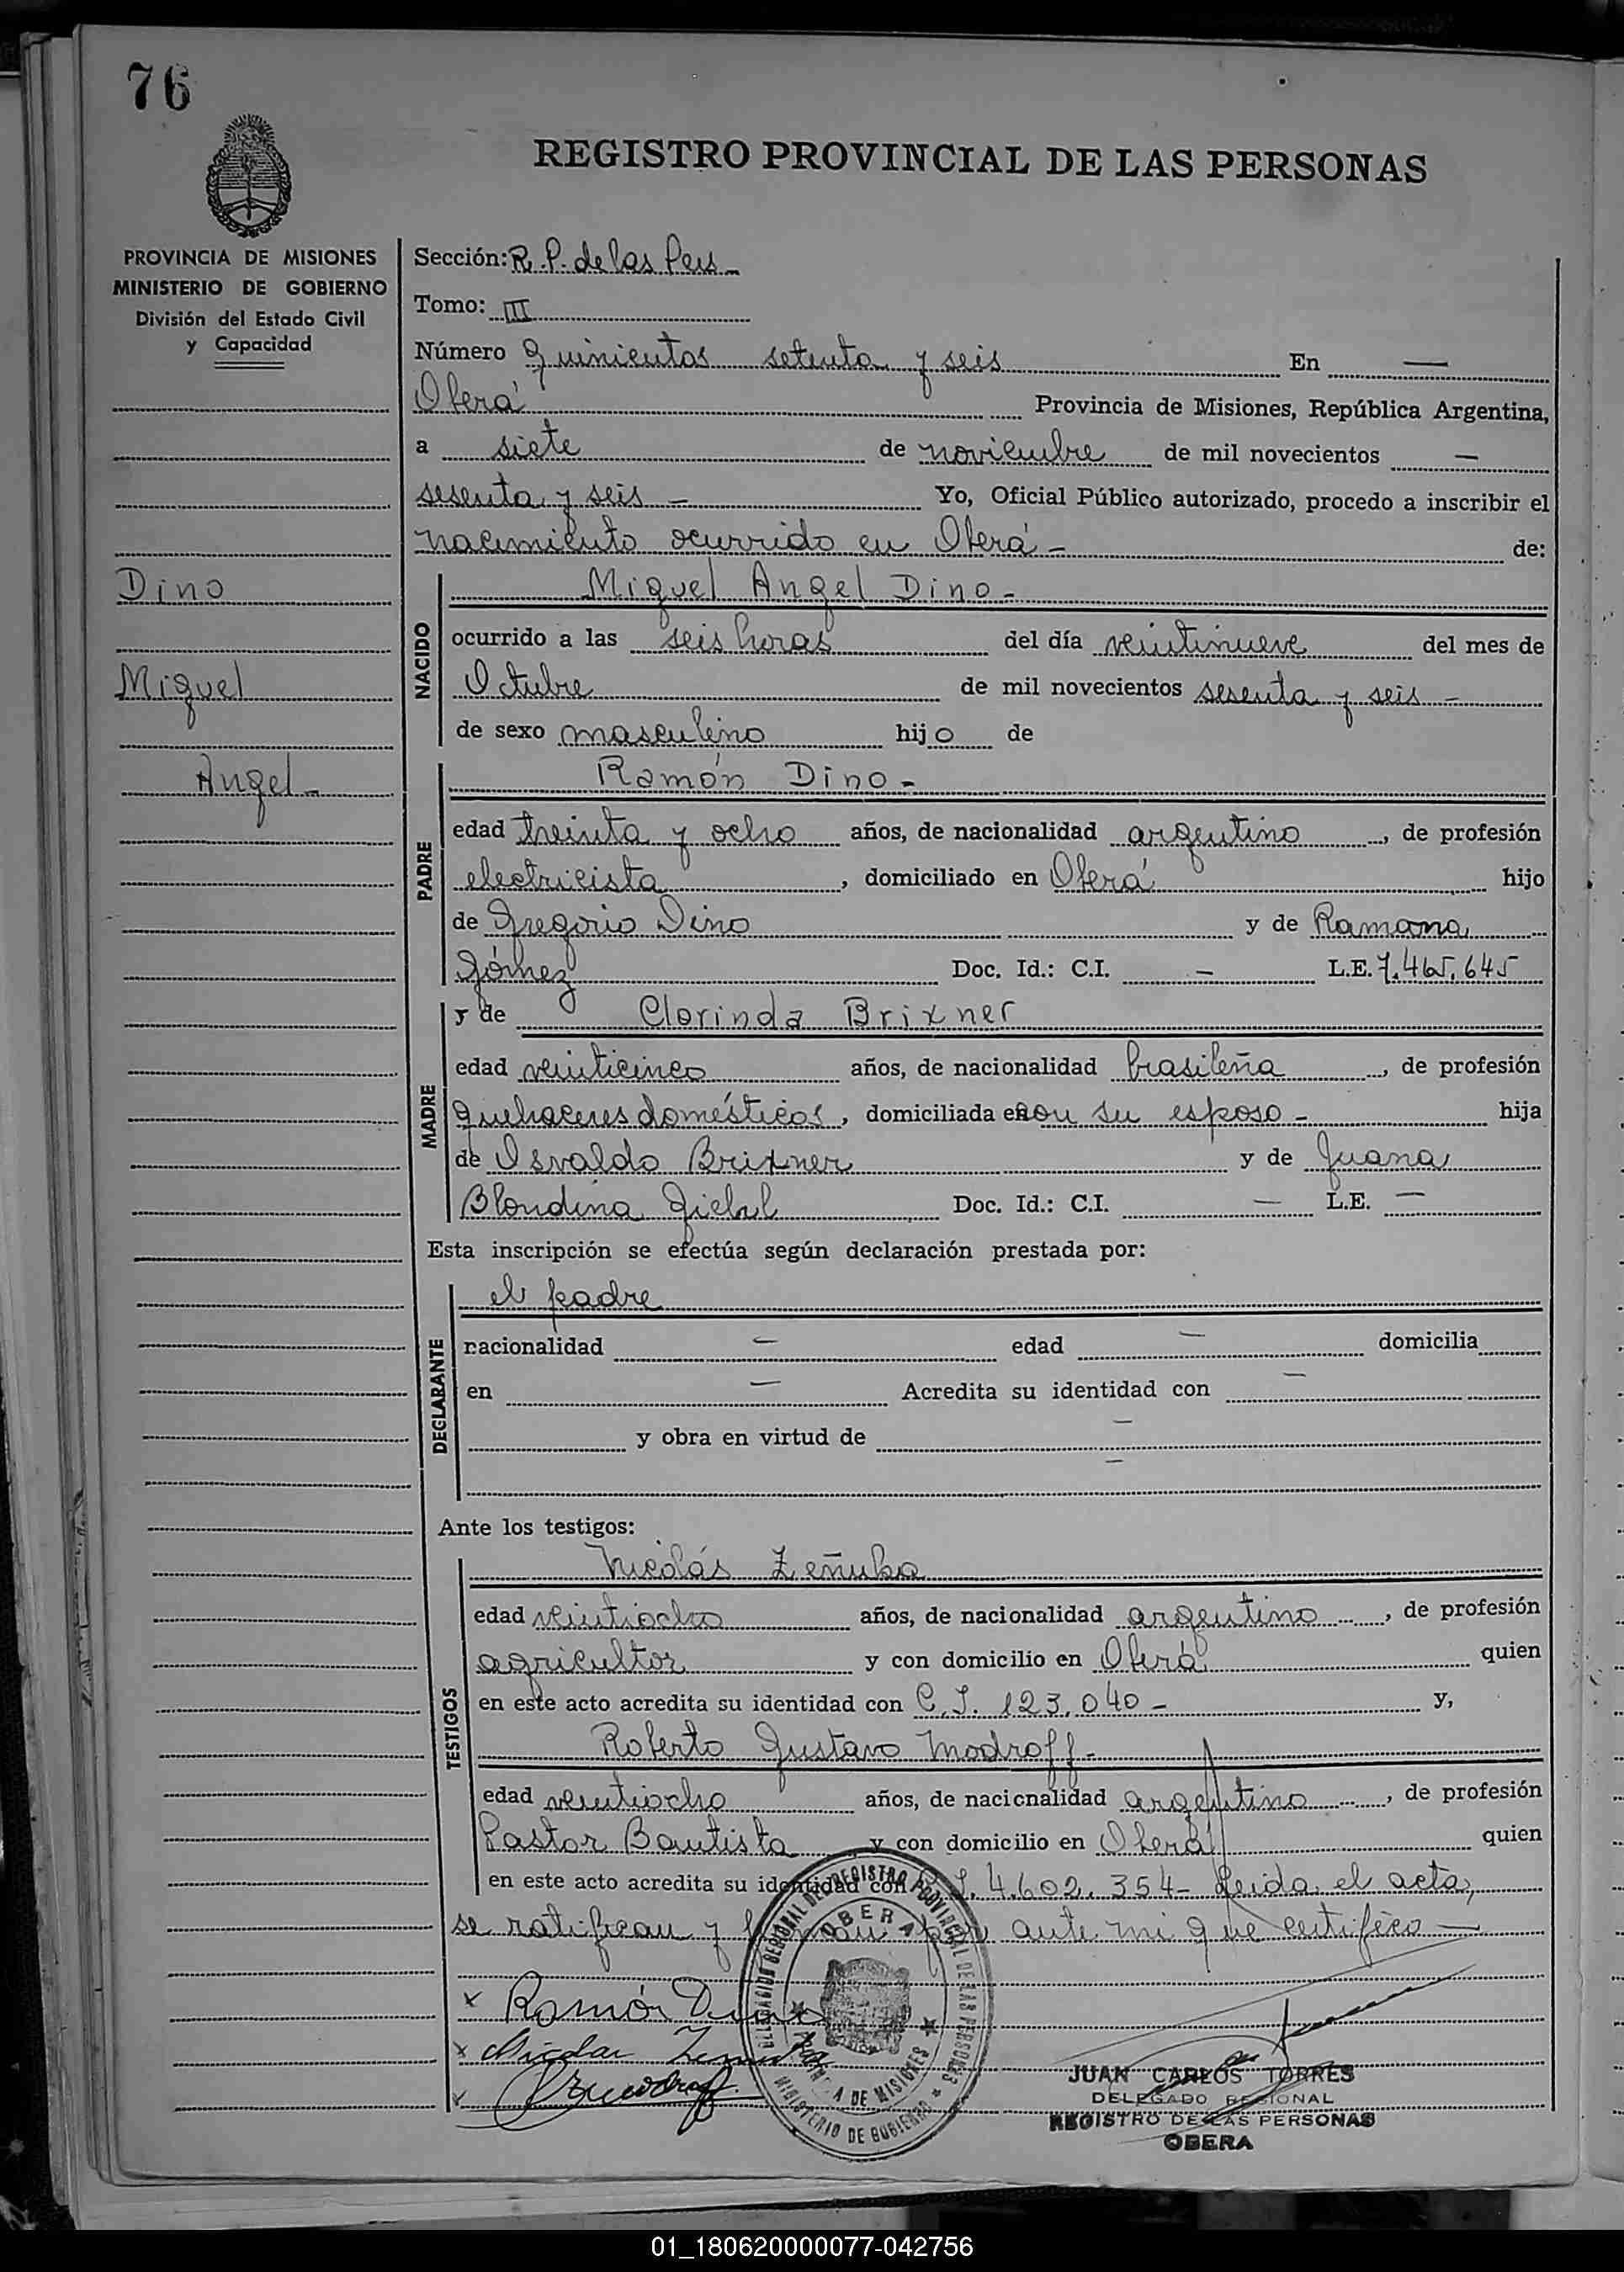 76
REGISTRO PROVINCIAL DE LAS PERSONAS
PROVINCIA DE MISIONES
MINISTERIO DE GOBIERNO
División del Estado Civil
y Capacidad
Dino
Miguel
Angel -
Sección: R. P. de las Pers -
Tomo: III
Número Quinientos setenta y seis En —
Oberá Provincia de Misiones, República Argentina,
a siete de noviembre de mil novecientos —
sesenta y seis - Yo, Oficial Público autorizado, procedo a inscribir el
nacimiento ocurrido en Oberá - de:
NACIDO
Miguel Angel Dino -
ocurrido a las seis horas del día veintinueve del mes de
Octubre de mil novecientos sesenta y seis -
de sexo masculino hijo de
PADRE
Ramón Dino -
edad treinta y ocho años, de nacionalidad argentino, de profesión
electricista, domiciliado en Oberá hijo
de Gregorio Dino y de Ramona
Gómez Doc. Id.: C.I. — L.E. 7.465.645
MADRE
y de Clorinda Brixner
edad veinticinco años, de nacionalidad brasileña, de profesión
quehaceres domésticos, domiciliada en con su esposo - hija
de Osvaldo Brixner y de Juana
Blondina Doc. Id.: C.I. — L.E. —
Esta inscripción se efectúa según declaración prestada por:
DECLARANTE
el padre
nacionalidad — edad — domicilia
en — Acredita su identidad con —
y obra en virtud de —
—
Ante los testigos:
TESTIGOS
Nicolás Zeñuka
edad veintiocho años, de nacionalidad argentino, de profesión
agricultor y con domicilio en Oberá quien
en este acto acredita su identidad con C.I. 123.040 - y,
Roberto Gustavo Modroff -
edad veintiocho años, de nacionalidad argentino, de profesión
Pastor Bautista y con domicilio en Oberá quien
en este acto acredita su identidad con 4.602.354 - Leida el acta,
se ratifican y firman por ante mi que certifico —
x Ramón Dino
x Nicolas
x
DELEGACION REGIONAL DEL REGISTRO PROVINCIAL DE LAS PERSONAS
OBERA
DE MISIONES
MINISTERIO DE GOBIERNO
JUAN CARLOS TORRES
DELEGADO REGIONAL
REGISTRO DE LAS PERSONAS
OBERA
01_180620000077-042756